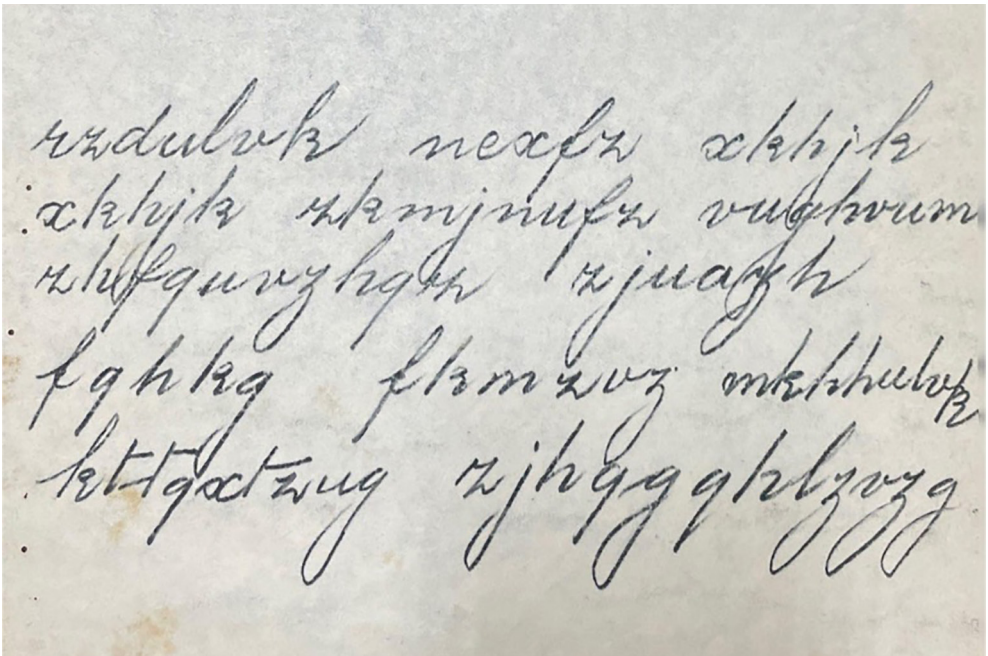 rzdulvk nexfz xkhjk
xkhjk zkmjnufz vughvum
zhfquvzhqz zjuazh
fqhkg fkmzvz mkhhulvk
kttqxtzug zjhqgqklzvzg